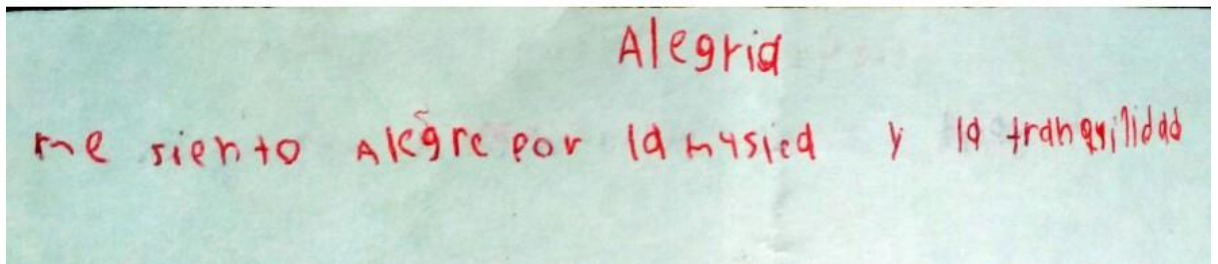 Alegria
me siento Alegre por la musica y la tranquilidad